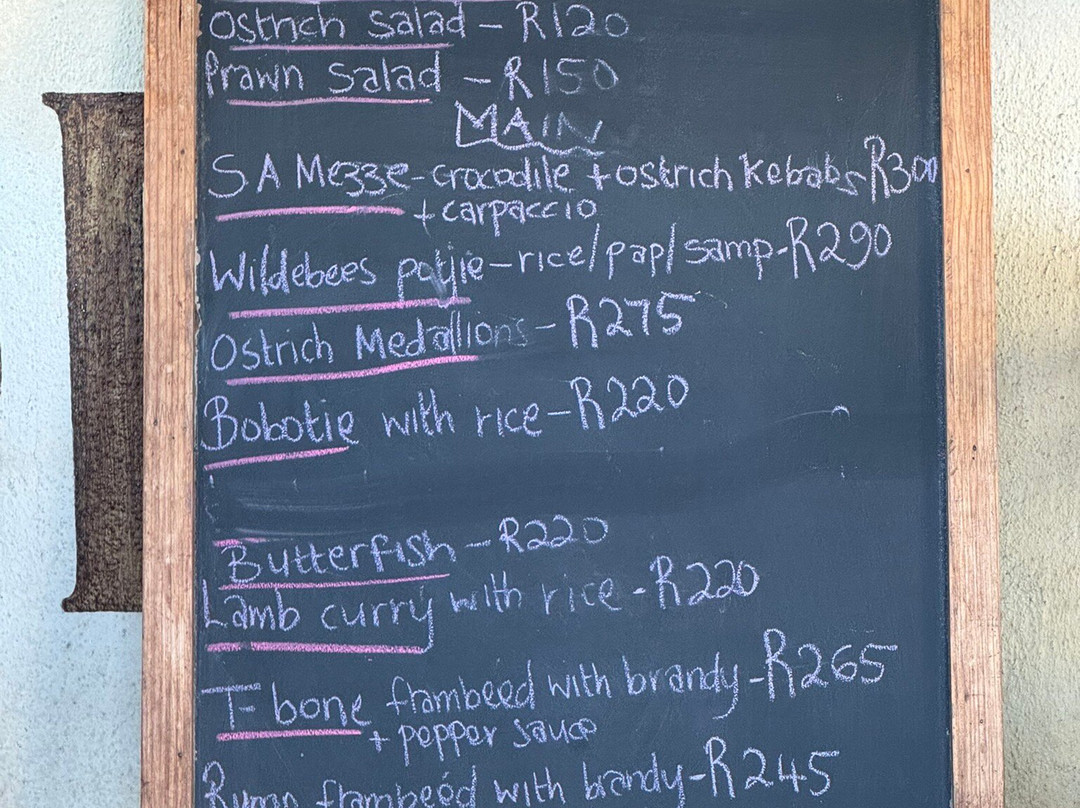 Ostrich Salad - R120
Prawn Salad - R150
MAIN
SA Mezze - crocodile + ostrich kebabs R300
+ carpaccio
Wildebees potjie - rice/pap/samp - R290
Ostrich Medallions - R275
Bobotie with rice - R220
Butterfish - R220
Lamb curry with rice - R220
T-bone flambeéd with brandy - R265
+ pepper sauce
Rump flambeéd with brandy - R245